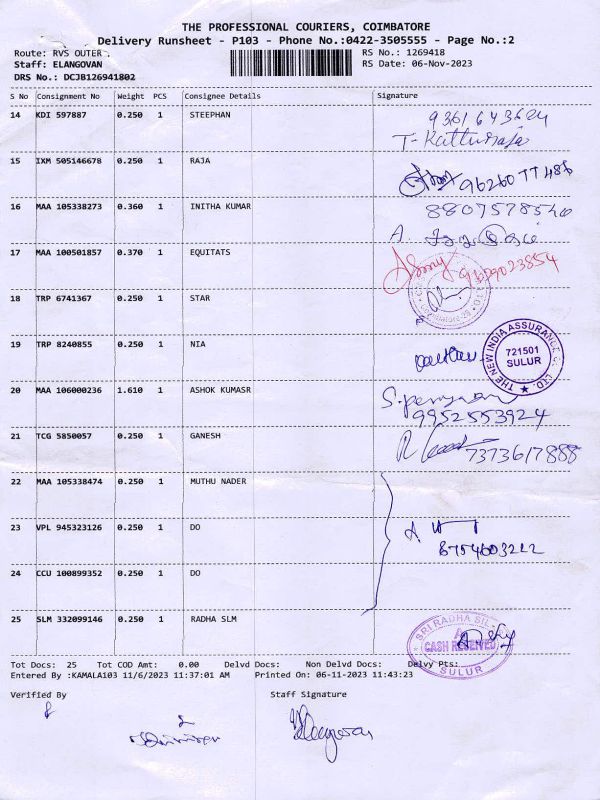 THE PROFESSIONAL COURIERS, COIMBATORE
Delivery Runsheet - P103 - Phone No.:0422-3505555 - Page No.:2
Route: RVS OUTER . RS No.: 1269418
Staff: ELANGOVAN RS Date: 06-Nov-2023
DRS No.: DCJB126941802
S No Consignment No Weight PCS Consignee Details Signature
14 KDI 597887 0.250 1 STEEPHAN 9361643624
T-Katturaja
15 IXM 505146678 0.250 1 RAJA
16 MAA 105338273 0.360 1 INITHA KUMAR
17 MAA 100501857 0.370 1 EQUITATS
18 TRP 6741367 0.250 1 STAR
19 TRP 8240855 0.250 1 NIA
THE NEW INDIA ASSURANCE CO. LTD.
721501
SULUR
20 MAA 106000236 1.610 1 ASHOK KUMASR
9952553924
21 TCG 5850057 0.250 1 GANESH 7373617888
22 MAA 105338474 0.250 1 MUTHU NADER
23 VPL 945323126 0.250 1 DO
8754603222
24 CCU 100899352 0.250 1 DO
25 SLM 332099146 0.250 1 RADHA SLM
SRI RADHA SIL
CASH RECEIVED
SULUR
Tot Docs: 25 Tot COD Amt: 0.00 Delvd Docs: Non Delvd Docs: Delvy Pts:
Entered By :KAMALA103 11/6/2023 11:37:01 AM Printed On: 06-11-2023 11:43:23
Verified By Staff Signature